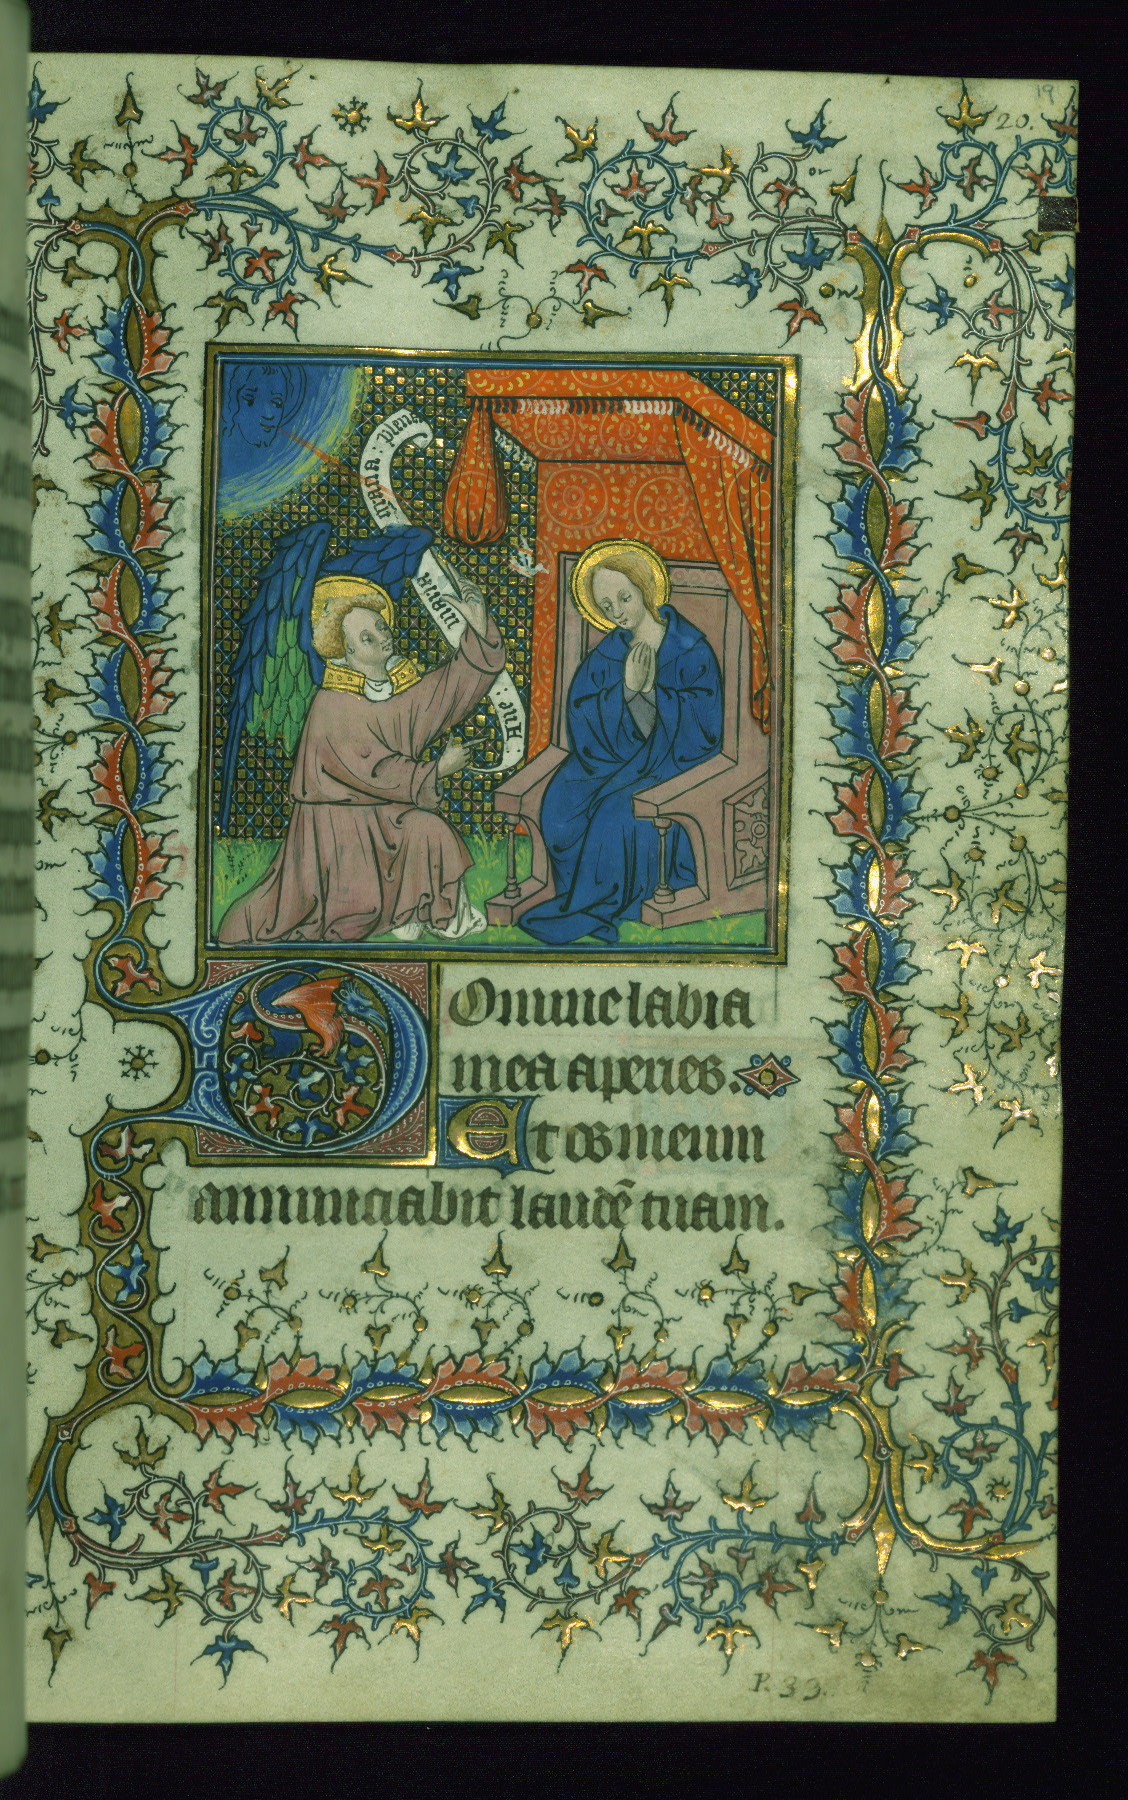 19
20.
Aue maria gracia plena
Domine labia
mea aperies.
Et os meum
annunciabit laudē tuam.
P. 33.